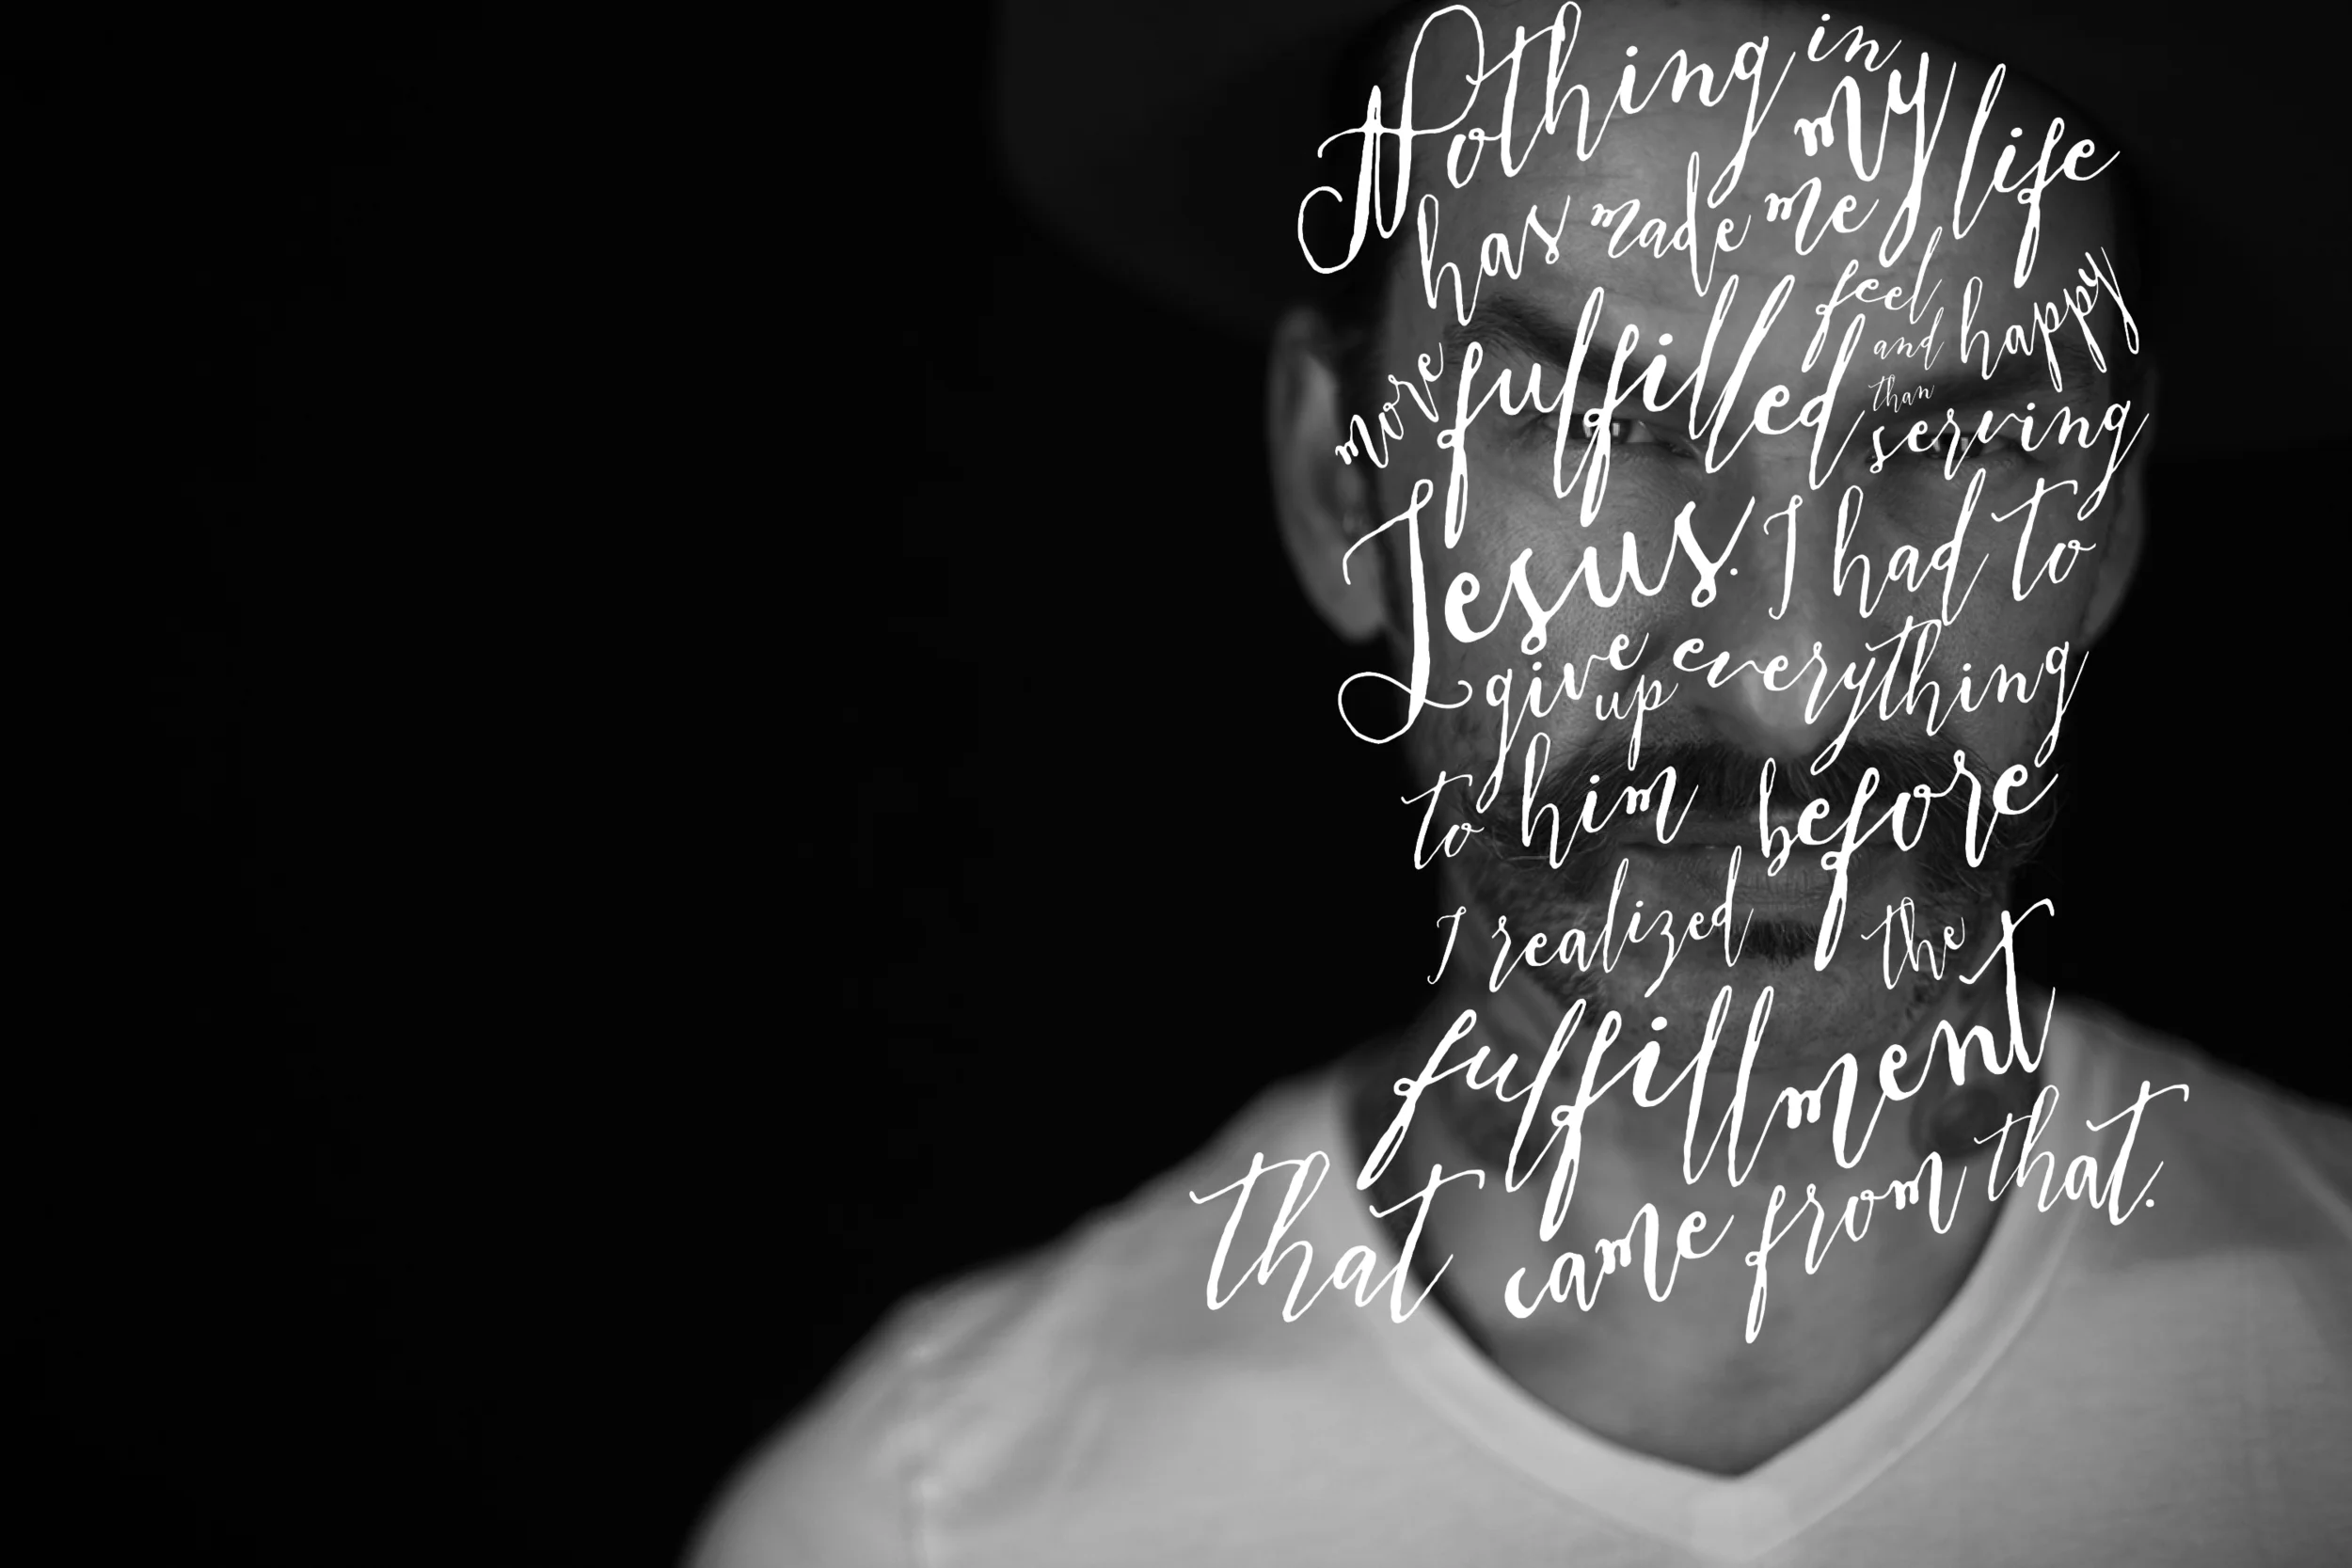 Nothing in my life
has made me feel
more fulfilled and happy
than serving
Jesus. I had to
give up everything
to him before
I realized the
fulfillment
that came from that.